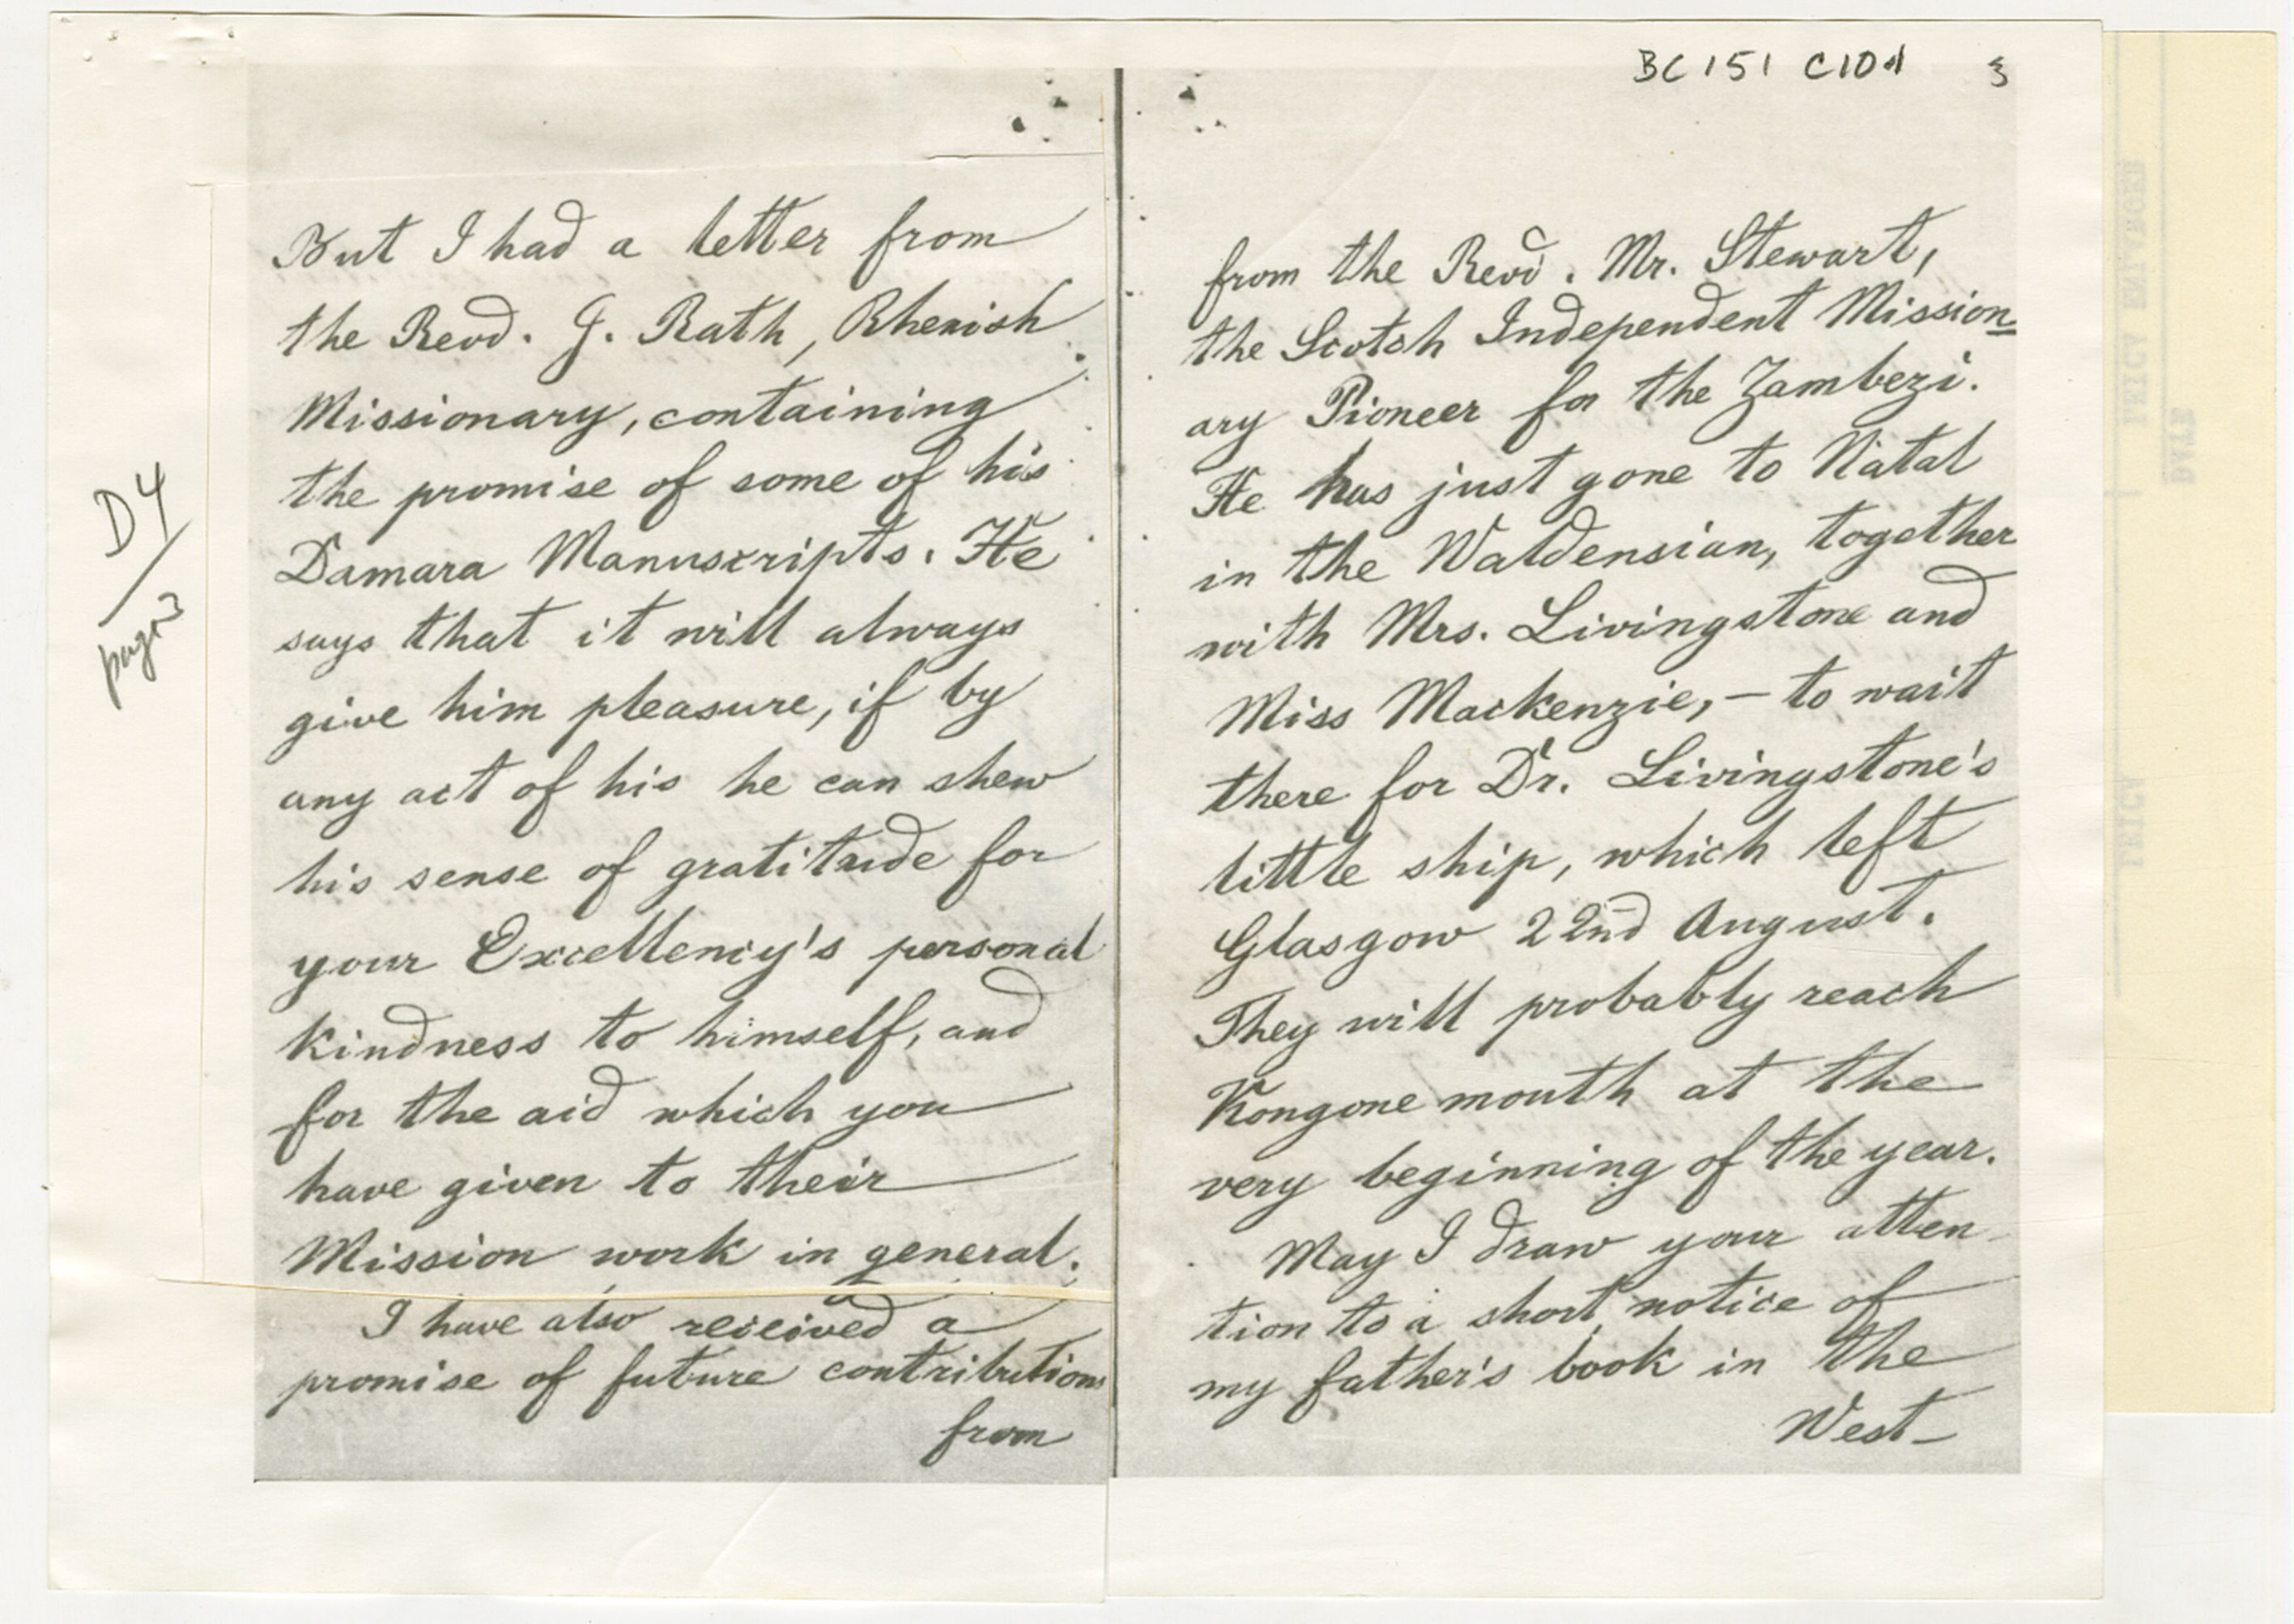 BC 151 C10d 3
D4/
page 3
But I had a letter from
the Revd. J. Rath, Rhenish
Missionary, containing
the promise of some of his
Damara Manuscripts. He
says that it will always
give him pleasure, if by
any act of his he can shew
his sense of gratitude for
your Excellency's personal
kindness to himself, and
for the aid which you
have given to their
Mission work in general.
I have also received a
promise of future contributions
from
from the Revd. Mr. Stewart,
the Scotch Independent Mission=
ary Pioneer for the Zambezi.
He has just gone to Natal
in the Waldensian, together
with Mrs. Livingstone and
Miss Mackenzie, – to wait
there for Dr. Livingstone's
little ship, which left
Glasgow 22nd August.
They will probably reach
Kongone mouth at the
very beginning of the year.
May I draw your atten-
tion to a short notice of
my father's book in the
West-